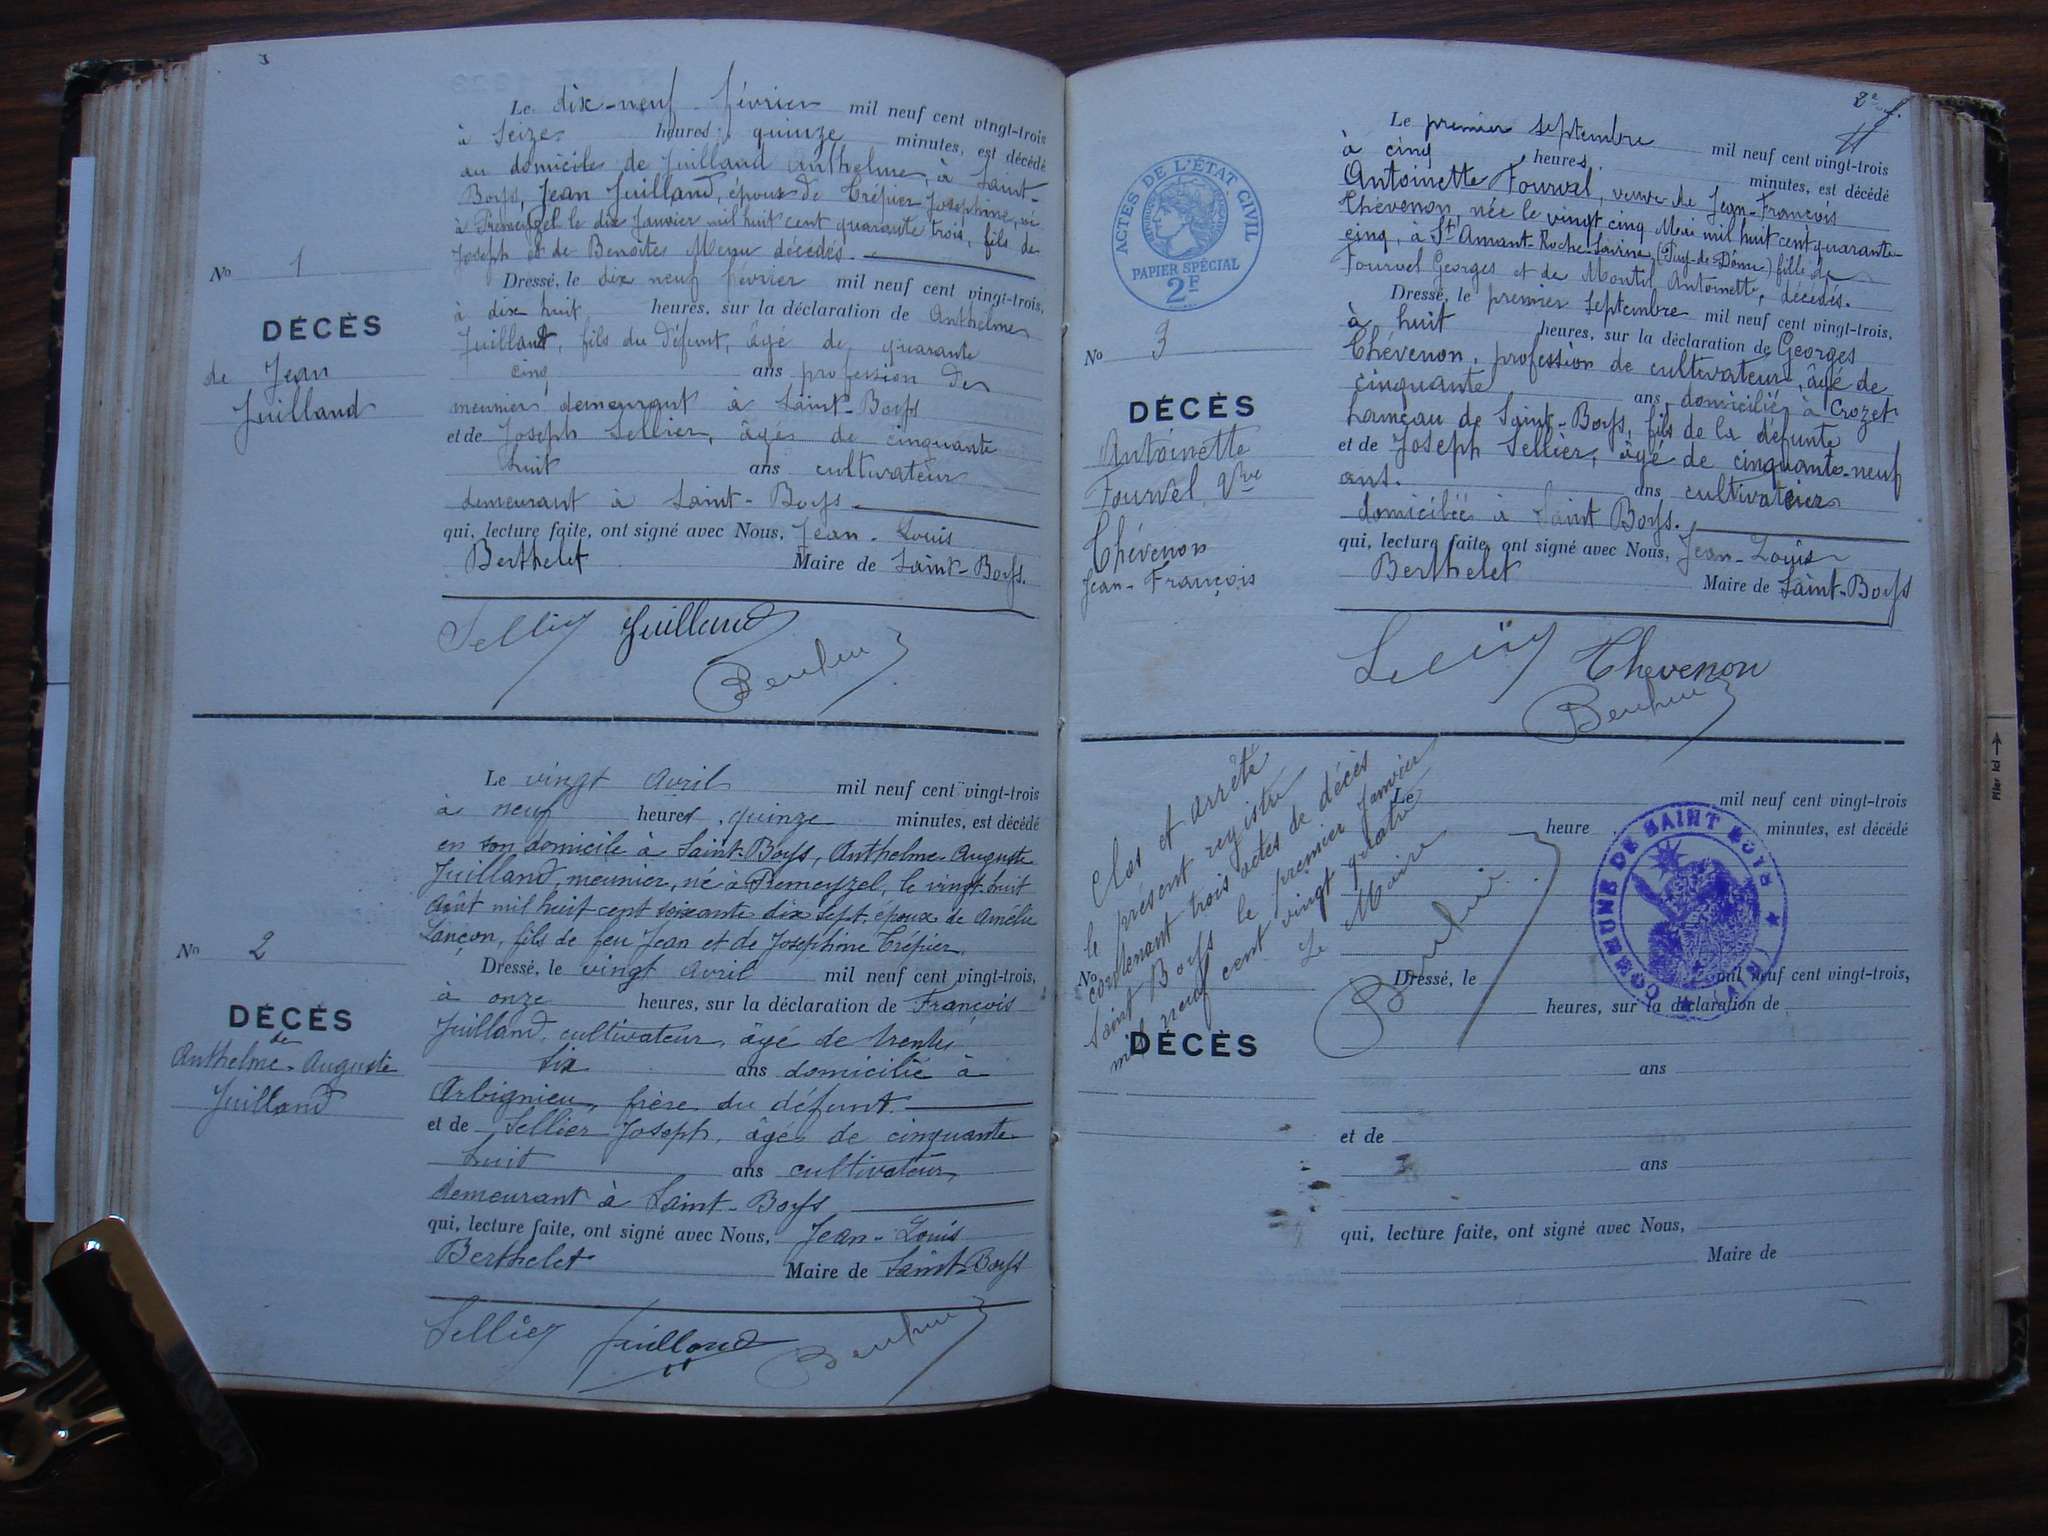 Le dix-neuf février mil neuf cent vingt-trois
à Seize heures quinze minutes, est décédé
au domicile de Juilland Anthelme, à Saint-
Boys, Jean Juilland, époux de Crépier Josephine, né
à Premeyzel le dix Janvier mil huit cent quarante trois, fils de
Joseph et de Benoite décédés.
Dressé, le dix neuf février mil neuf cent vingt-trois,
à dix huit heures, sur la déclaration de Anthelme
Juilland, fils du défunt, âgé de quarante
cinq ans profession de
meunier demeurant à Saint-Boys
et de Joseph Sellier, âgé de cinquante
huit ans cultivateur
demeurant à Saint-Boys
qui, lecture faite, ont signé avec Nous, Jean-Louis
Berthelet Maire de Saint-Boys.
No 1
DÉCÈS
de Jean
Juilland
Juilland
Le vingt avril mil neuf cent vingt-trois
à neuf heures, quinze minutes, est décédé
en son domicile à Saint-Boys, Anthelme Auguste
Juilland, meunier, né à Premeyzel, le vingt-huit
août mil huit cent soixante dix sept, époux de Amélie
Lançon, fils de feu Jean et de Josephine Crépier.
Dressé, le vingt avril mil neuf cent vingt-trois,
à onze heures, sur la déclaration de François
Juilland, cultivateur, âgé de trente
six ans domicilié à
Arbignieu, frère du défunt
et de Sellier Joseph, âgé de cinquante
huit ans cultivateur,
demeurant à Saint-Boys
qui, lecture faite, ont signé avec Nous, Jean-Louis
Berthelet Maire de Saint-Boys
No 2
DÉCÈS
de
Anthelme-Auguste
Juilland
Sellier Juilland
2e f.
Le premier septembre mil neuf cent vingt-trois
à cinq heures minutes, est décédé
Antoinette Fourvel, veuve de Jean-François
Chévenon, née le vingt cinq Mai mil huit cent quarante-
cinq, à St Amant-Roche-Savine, (Puy-de-Dôme) fille de
Fourvel Georges et de Montil Antoinette, décédés.
Dressé, le premier septembre mil neuf cent vingt-trois,
à huit heures, sur la déclaration de Georges
Chévenon, profession de cultivateur, âgé de
cinquante ans, domicilié à Crozet
hameau de Saint-Boys, fils de la défunte
et de Joseph Sellier, âgé de cinquante-neuf
ans. ans cultivateur
domiciliée à Saint Boys.
qui, lecture faite, ont signé avec Nous, Jean-Louis
Berthelet Maire de Saint-Boys
ACTES DE L'ÉTAT CIVIL
PAPIER SPÉCIAL
2F
No 3
DÉCÈS
Antoinette
Fourvel, Vve
Chévenon
Jean-François
Chevenon
Clos et arrêté
le présent registre
contenant trois actes de décès
Saint Boys le premier Janvier
mil neuf cent vingt quatre
Le Maire
Le mil neuf cent vingt-trois
heure minutes, est décédé
COMMUNE DE SAINT BOYS
(AIN)
No
DÉCÈS
Dressé, le mil neuf cent vingt-trois,
heures, sur la déclaration de
ans
et de
ans
qui, lecture faite, ont signé avec Nous,
Maire de